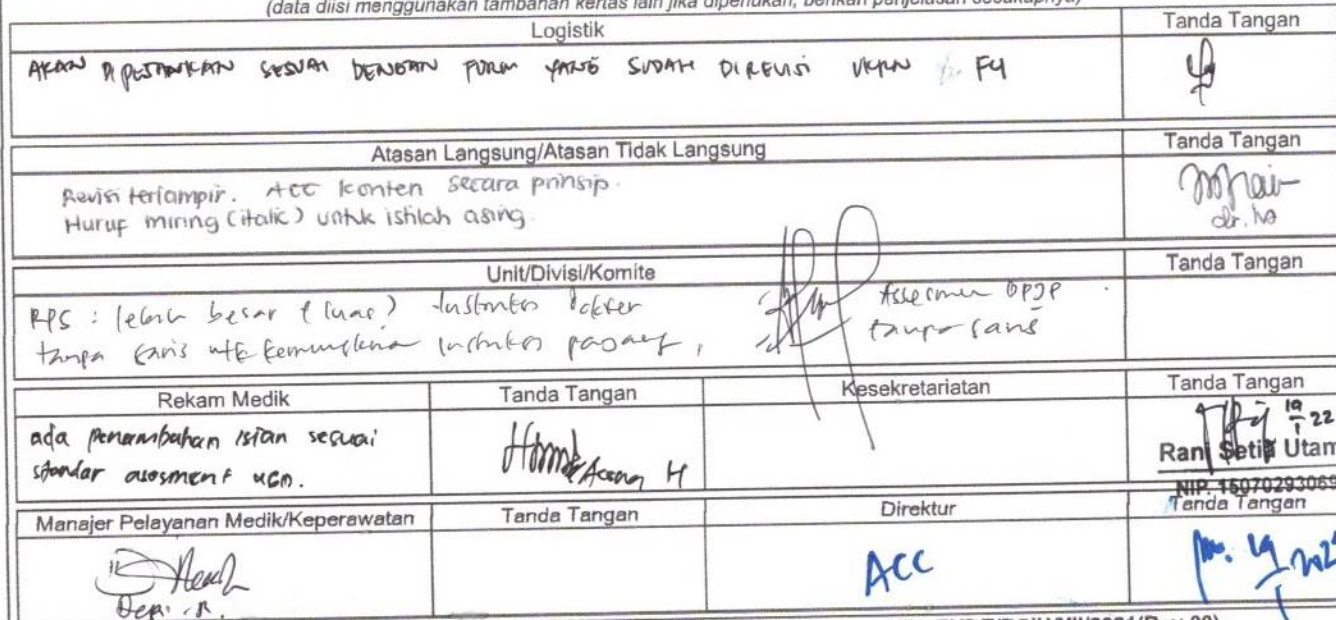 (data diisi menggunakan tambahan kertas lain jika diperlukan, berikan penjelasan secukupnya)
Logistik Tanda Tangan
AKAN DIPESANKAN SESUAI DENGAN FORM YANG SUDAH DIREVISI F4
Atasan Langsung/Atasan Tidak Langsung Tanda Tangan
Revisi terlampir. ACC konten secara prinsip.
Huruf miring (italic) untuk istilah asing.
Unit/Divisi/Komite Tanda Tangan
lebih besar (luas) dokter
tanpa garis
tanpa garis
Rekam Medik Tanda Tangan Kesekretariatan Tanda Tangan
ada penambahan isian sesuai
standar asesment UGD.
19/1 22
Rani Setia Utam
NIP. 1507029306
Manajer Pelayanan Medik/Keperawatan Tanda Tangan Direktur Tanda Tangan
ACC